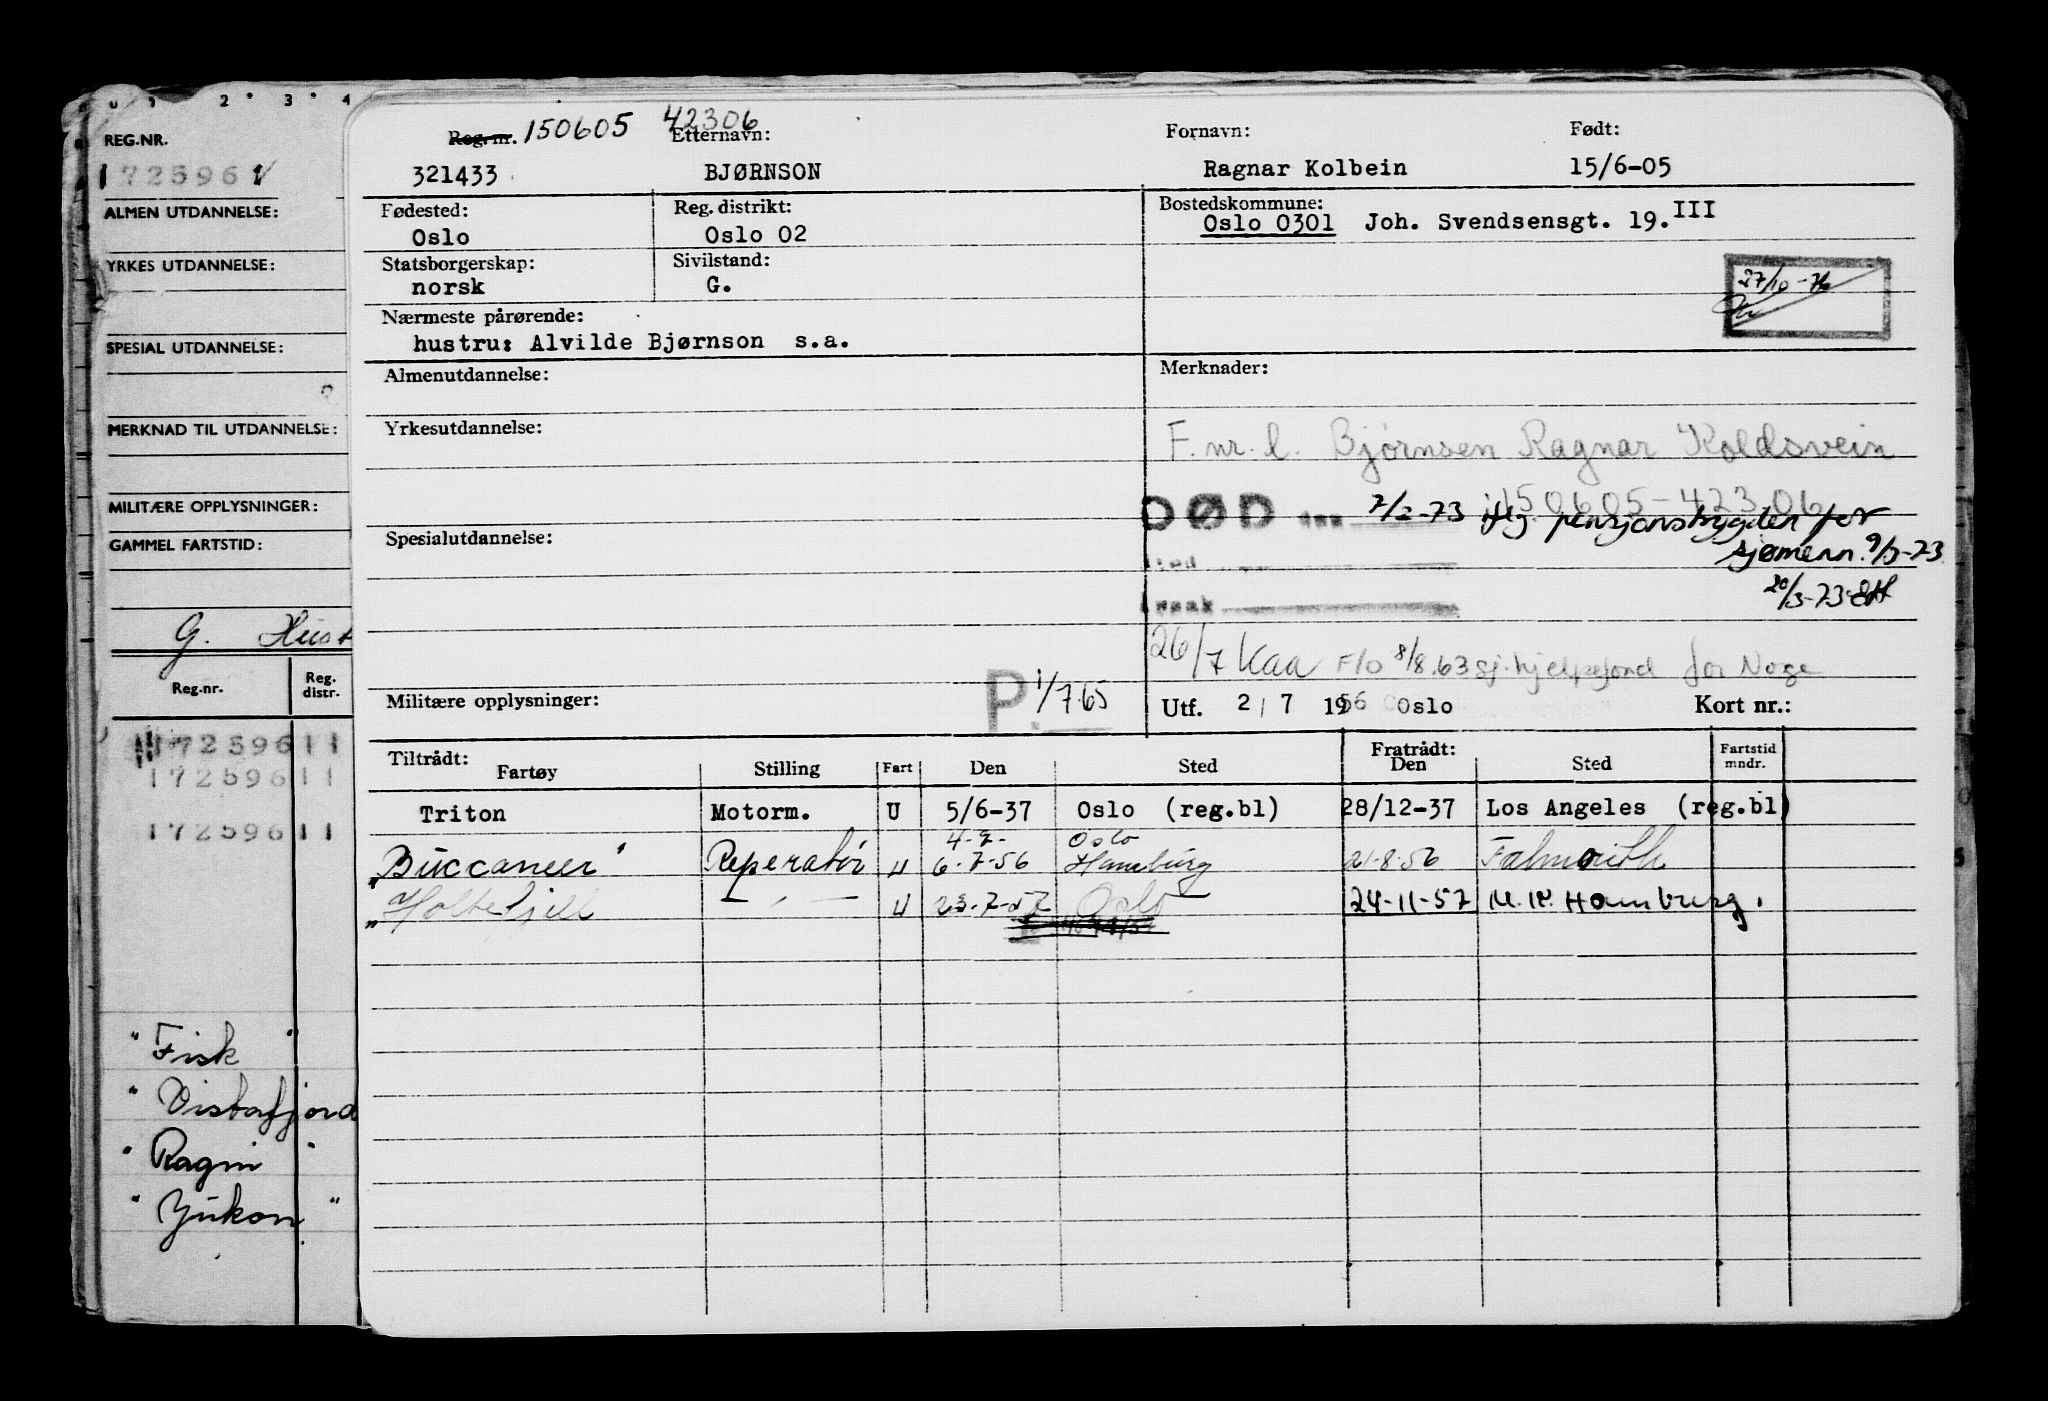 0 1 2 3 4
REG.NR.
1725961
ALMEN UTDANNELSE:
YRKES UTDANNELSE:
SPESIAL UTDANNELSE:
MERKNAD TIL UTDANNELSE:
MILITÆRE OPPLYSNINGER:
GAMMEL FARTSTID:
G. Hust
Reg.nr. Reg. distr.
17259611
17259611
17259611
"Fisk"
"Vistafjord
"Ragni"
"Yukon"
Reg.nr. 150605 42306 Etternavn: Fornavn: Født:
321433 BJØRNSON Ragnar Kolbein 15/6-05
Fødested: Reg. distrikt: Bostedskommune:
Oslo Oslo 02 Oslo 0301 Joh. Svendsensgt. 19.III
Statsborgerskap: Sivilstand:
norsk G.
27/10-76
Nærmeste pårørende:
hustru: Alvilde Bjørnson s.a.
Almenutdannelse: Merknader:
Yrkesutdannelse:
F. nr. l. Bjørnsen Ragnar Koldsvein
150605-42306
DØD den 7/2-73 iflg. pensjonstrygden for
sjømenn. 9/3-73
Spesialutdannelse:
Sted
20/3-73
Årsak
26/7 Kaa F/O 8/8.63 Sj.hjelpefond for Noge
Militære opplysninger: P. 1/7 65
Utf. 2/7 1956 Oslo Kort nr.:
Tiltrådt: Fratrådt:
Fartøy Stilling Fart Den Sted Den Sted Fartstid mndr.
Triton Motorm. U 5/6-37 Oslo (reg.bl) 28/12-37 Los Angeles (reg.bl)
4-7- Oslo
"Buccaneer" Reperatør U 6-7-56 Hamburg 21-8-56 Falmouth
"Holtefjell — " — U 23-7-57 Oslo 24-11-57 Hamburg.